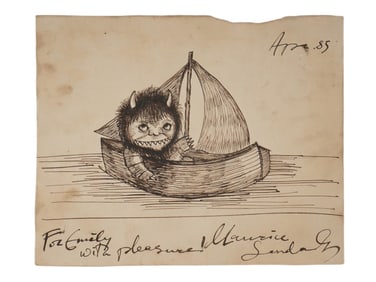 Apr. 85
For Emily
with pleasure! Maurice
Sendak